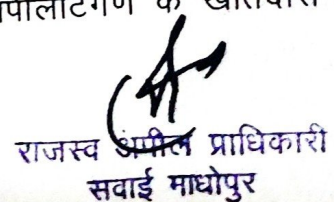 पीलाटगण के खातेदारी
राजस्व अपील प्राधिकारी
सवाई माधोपुर